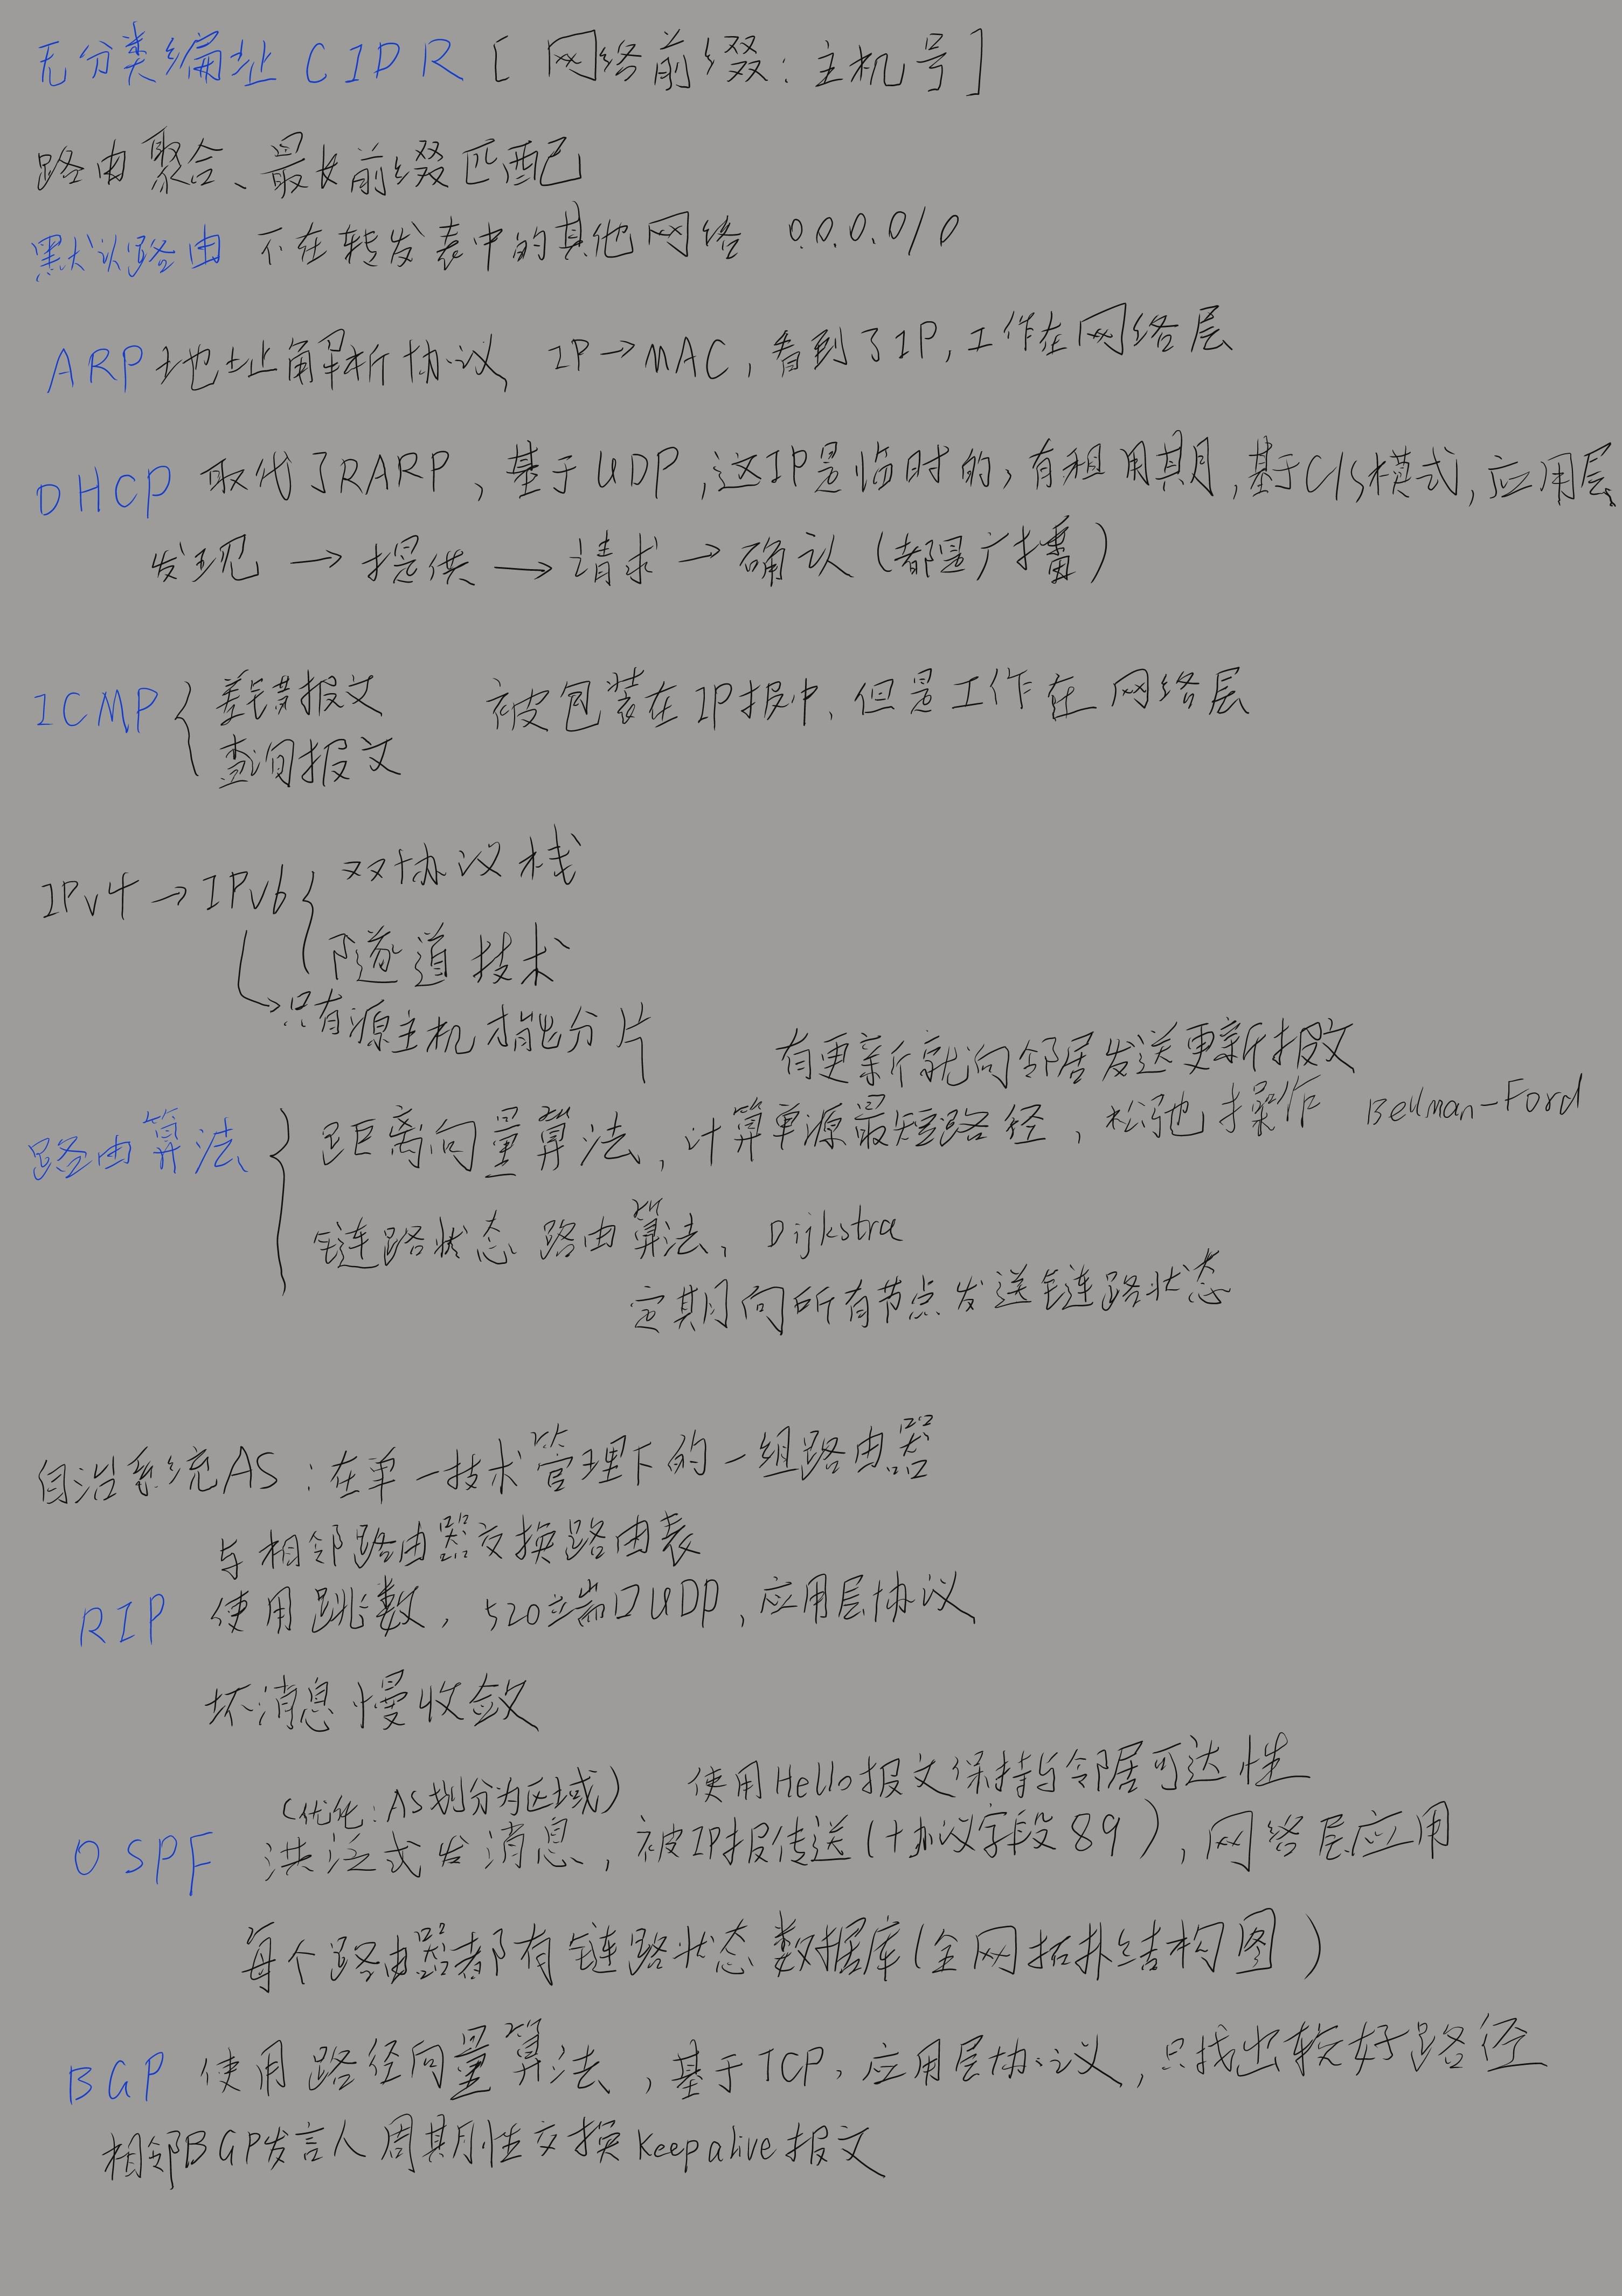 无分类编址 CIDR [ 网络前缀: 主机号 ]
路由聚合、最长前缀匹配
默认路由 不在转发表中的其他网络 0.0.0.0/0
ARP 地址解析协议 IP→MAC, 看到了IP, 工作在网络层
DHCP 取代了RARP, 基于UDP, 这IP是临时的, 有租用期, 基于C/S模式, 应用层
发现 → 提供 → 请求 → 确认 (都是广播)
ICMP { 差错报文 被包装在IP报中, 但是工作在网络层
查询报文
IPv4 → IPv6 { 双协议栈
隧道技术
→ 只有源主机才能分片
有更新就向邻居发送更新报文
路由算法 { 距离向量算法, 计算单源最短路径, 松弛操作 Bellman-Ford
链路状态路由算法, Dijkstra
定期向所有节点发送链路状态
自治系统AS : 在单一技术管理下的一组路由器
与相邻路由器交换路由表
RIP 使用跳数, 520端口UDP, 应用层协议
坏消息慢收敛
(优化: AS划分为区域) 使用Hello报文保持与邻居可达性
OSPF 洪泛式发消息, 被IP报传送(协议字段89), 网络层应用
每个路由器都有链路状态数据库(全网拓扑结构图)
BGP 使用路径向量算法, 基于TCP, 应用层协议, 只找出较好路径
相邻BGP发言人周期性交换Keepalive报文